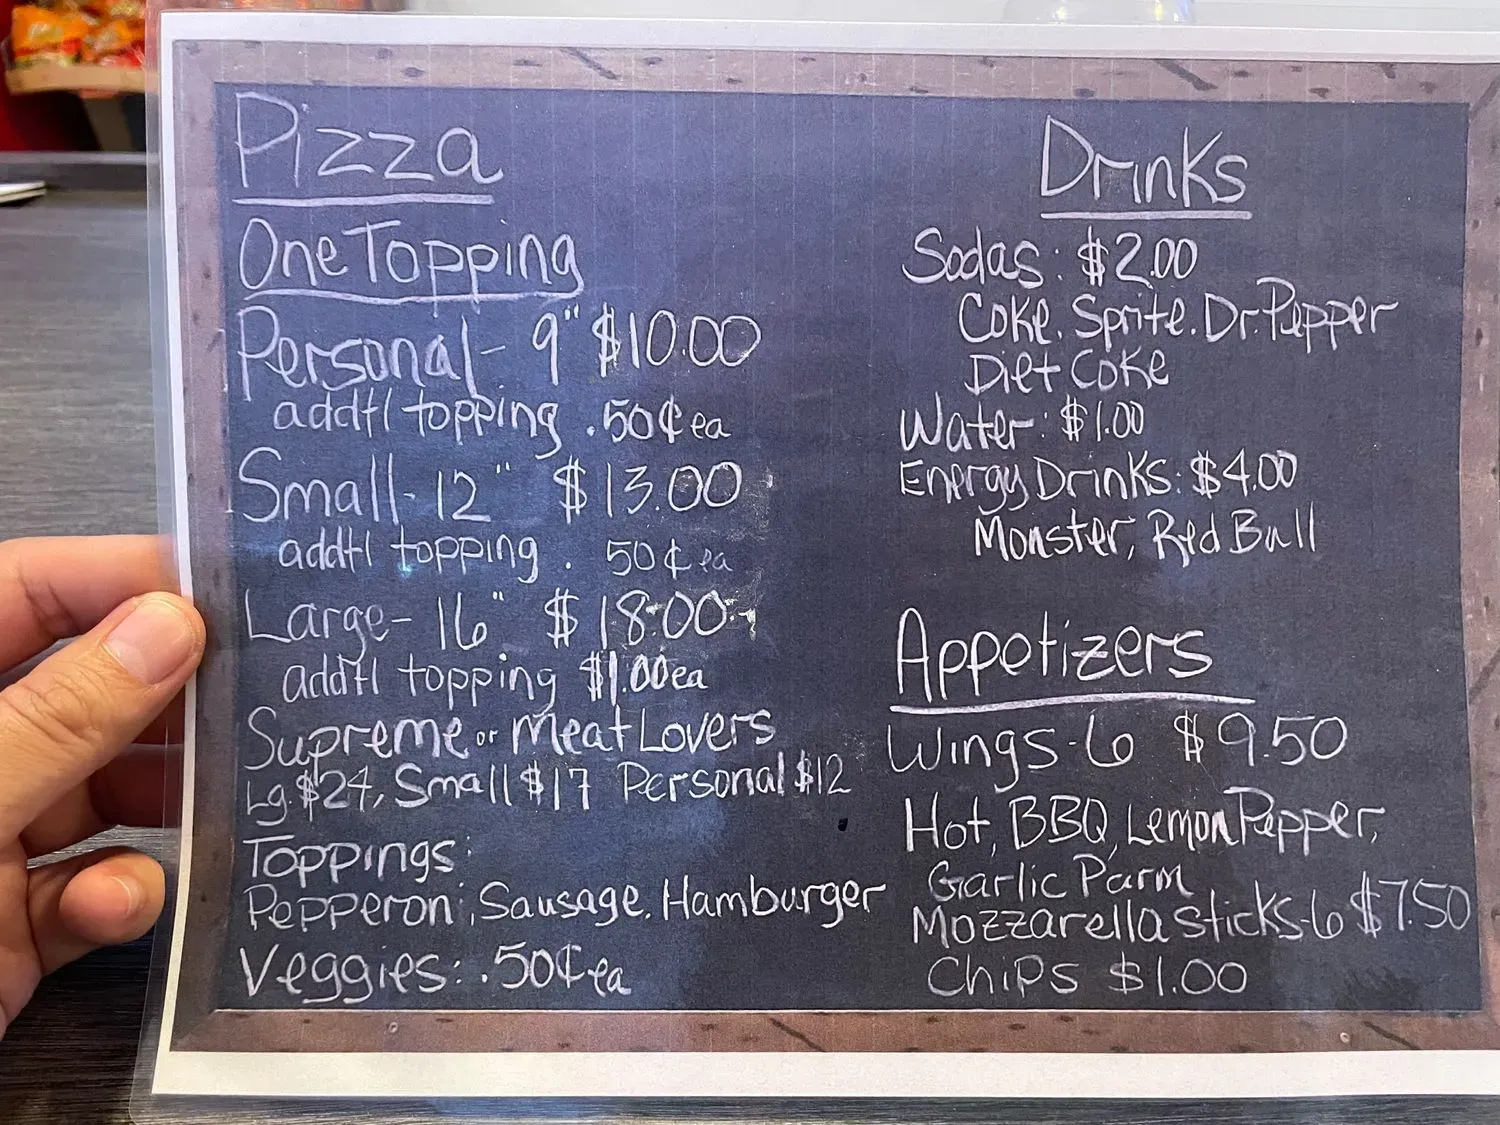 Pizza
One Topping
Personal - 9" $10.00
addtl topping .50¢ ea
Small - 12" $13.00
addtl topping . 50¢ ea
Large - 16" $18.00
addtl topping $1.00 ea
Supreme or Meat Lovers
Lg. $24, Small $17 Personal $12
Toppings:
Pepperoni, Sausage. Hamburger
Veggies: .50¢ ea
Drinks
Sodas: $2.00
Coke. Sprite. Dr. Pepper
Diet Coke
Water: $1.00
Energy Drinks: $4.00
Monster, Red Bull
Appetizers
Wings - 6 $9.50
Hot, BBQ, Lemon Pepper,
Garlic Parm
Mozzarella Sticks - 6 $7.50
Chips $1.00